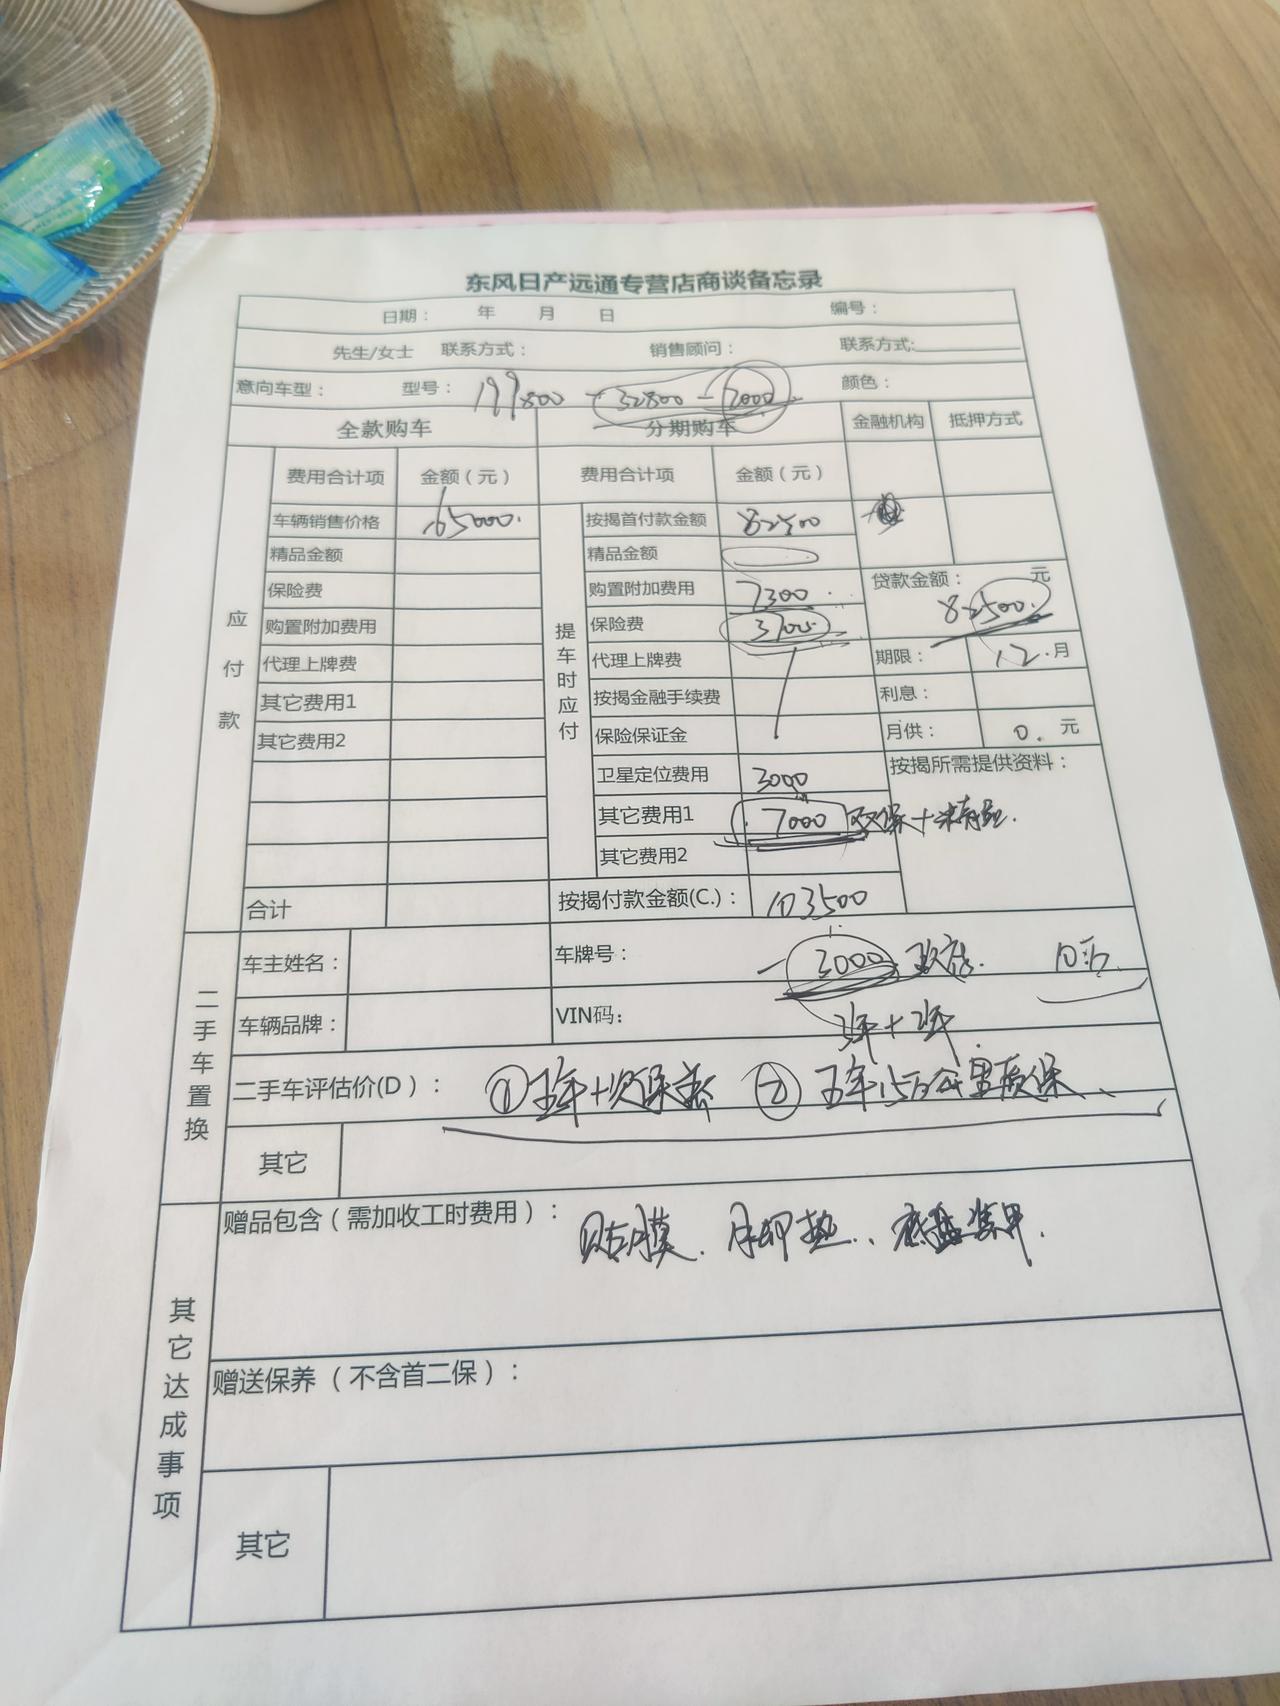 东风日产远通专营店商谈备忘录
日期： 年 月 日 编号：
先生/女士 联系方式： 销售顾问： 联系方式:
意向车型： 型号： 199800 - 32800 - 2000 颜色：
全款购车 分期购车 金融机构 抵押方式
费用合计项 金额（元） 费用合计项 金额（元）
应付款
车辆销售价格 165000.
精品金额
保险费
购置附加费用
代理上牌费
其它费用1
其它费用2
合计
提车时应付
按揭首付款金额 82500
精品金额
购置附加费用 7300
保险费 3700
代理上牌费
按揭金融手续费
保险保证金
卫星定位费用 3000
其它费用1 7000 双保+
其它费用2
按揭付款金额(C.)： 103500
贷款金额： 82500. 元
期限： 12.月
利息：
月供： 0. 元
按揭所需提供资料：
二手车置换
车主姓名： 车牌号： - 3000
车辆品牌： VIN码： 3年+2年
二手车评估价(D)： ①五年十次保养 ②五年15万公里质保
其它
其它达成事项
赠品包含（需加收工时费用）： 贴膜. 脚垫. 底盘装甲.
赠送保养（不含首二保）：
其它